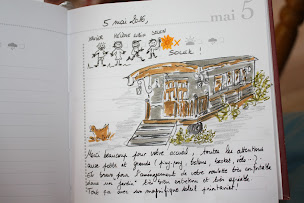 5 mai 2016,
mai 5
XAVIER HÉLÈNE Lubin SOLEN
X
SOLEIL !
Merci beaucoup pour votre accueil, toutes les attentions
aux petits et grands ! ping-pong, ballons, basket, vélo - ?.
Et bravo pour l'aménagement de votre roulotte très confortable
dans un jardin très bien entretenu et très agréable
Tout ça avec un magnifique soleil printanier !